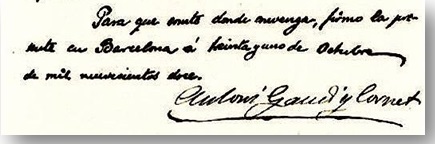 Para que conste donde convenga, firmo la pre-
sente en Barcelona á treinta y uno de Octubre
de mil novecientos doce.
Antoni Gaudí y Cornet